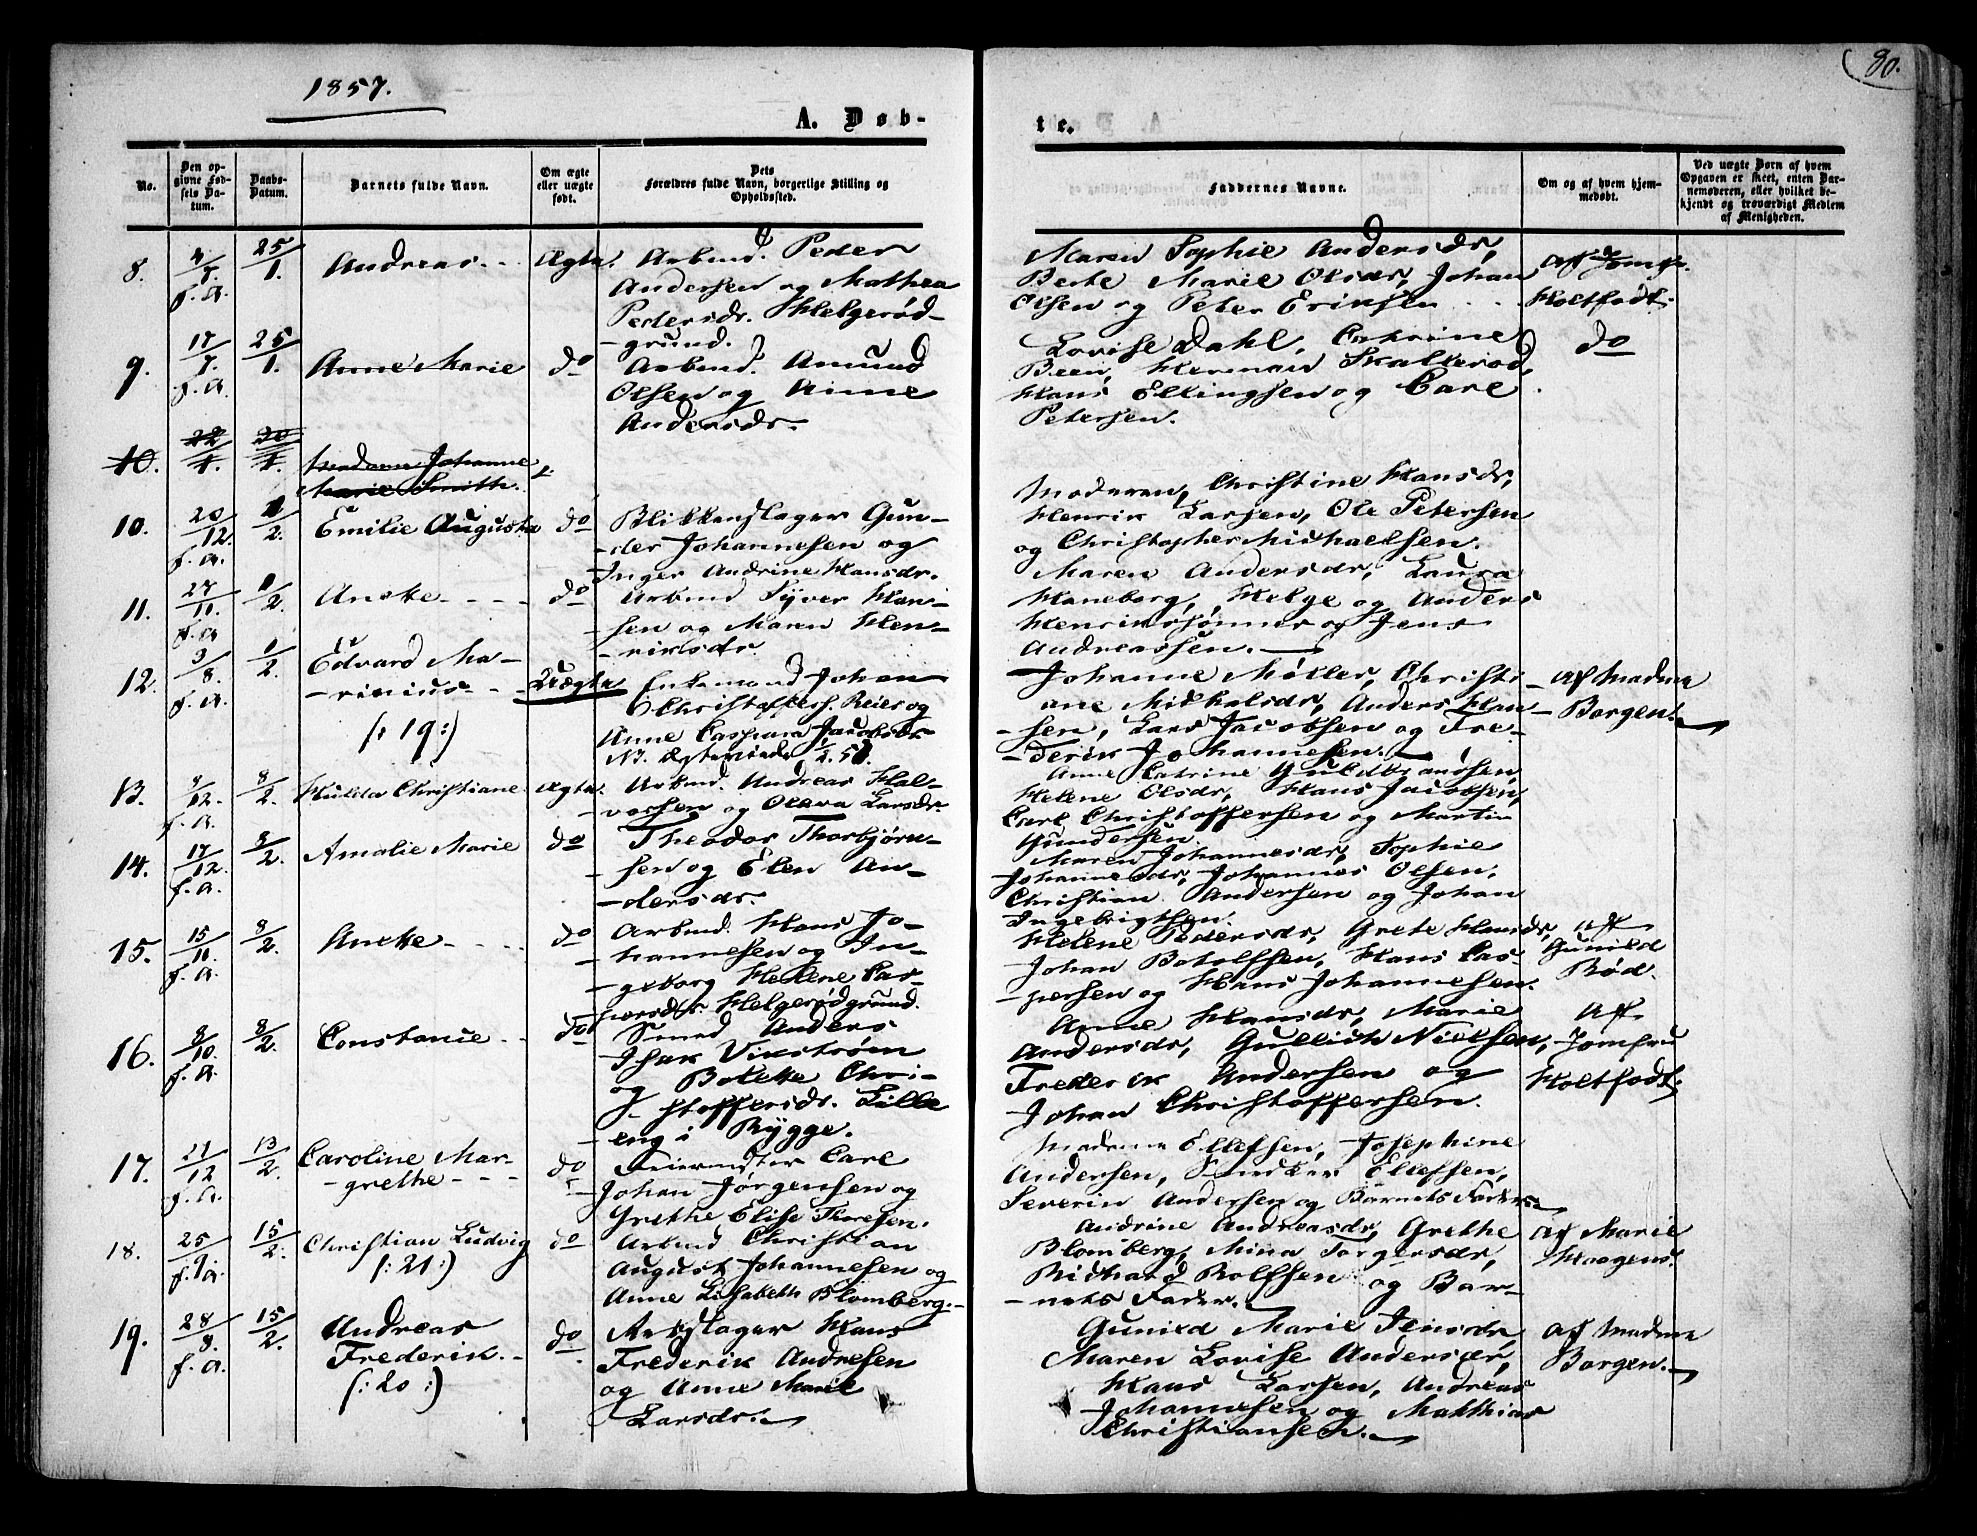 1857.
80.
A. Døb-
te.
No.
Den op-
givne Fød-
sels Da-
tum.
Daabs-
Datum.
Barnets fulde Navn.
Om ægte
eller uægte
født.
Dets
Forældres fulde Navn, borgerlige Stilling og
Opholdssted.
Faddernes Navne.
Om og af hvem hjem-
medøbt.
Ved uægte Børn af hvem
Opgaven er skeet, enten Bar-
nemoderen, eller hvilket be-
kjendt og troværdigt Medlem
af Menigheden.
8.
f. A.
25/1.
Andreas
Ægte.
Arbmd. Peder
Andersen og Mathea
Pedersdr. Helgerød-
grund.
Maren Sophie Andersdr,
Berte Marie Olsdr, Johan
Olsen og Peter Eriksen
Af Jomfr.
Holtfodt.
9.
17/7.
f. A.
25/1.
Anne Marie
do
Arbmd. Amund
Olsen og Anne
Andersdr.
Lovise Dahl, Cathrine
Been, Herman Skallerød,
Hans Ellingsen og Carl
Petersen.
do
10.
22/1.
30/1.
Madame Johanne
Marie Smith.
10.
20/12.
f. A.
1/2.
Emilie Augusta
do
Blikkenslager Gun-
der Johannesen og
Inger Andrine Hansdr.
Moderen, Christine Hansdr,
Henrik Larsen, Ole Petersen
og Christopher Michaelsen.
11.
27/11.
f. A.
1/2.
Aneke
do
Arbmd Syver Han-
sen og Maren Hen-
riksdr.
Maren Andersdr, Laura
Haneborg, Helge og Anders
Henrikssønner og Jens
Andreassen.
12.
3/8.
f. A.
1/2.
Edvard Ma-
rinius
(: 19 :)
Uægte
Enkemand Johan
Christoffers. Reier og
Anne Caspara Jacobsdr
Johanne Møller, Christi-
ane Mikkelsdr, Anders Han-
sen, Lars Jacobsen og Fre-
derik Johannesen.
Af Madme
Borgen.
13.
9/12.
f. A.
8/2.
Hulda Christiane
Ægte.
Arbmd. Andreas Hal-
vorsen og Olava Larsdr.
Anne Catrine Guldbrandsen,
Helene Olsdr, Hans Jacobsen,
Carl Christoffersen og Martin
Gundersen.
14.
17/12.
f. A.
8/2.
Amalie Marie
do
Theodor Thorbjørn-
sen og Elen An-
dersdr.
Maren Johannesdr, Sophie
Johannesdr, Johannes Olsen,
Christian Andersen og Johan
Ingebrigtsen.
15.
15/11.
f. A.
8/2.
Aneke
do
Arbmd. Hans Jo-
hannesen og In-
geborg Helene Cas-
persdr. Helgerødgrund.
Helene Pedersdr, Grete Hansdr,
Johan Botolfsen, Hans Cas-
persen og Hans Johannesen.
Af
Gunild
Rød.
16.
8/10.
f. A.
8/2.
Constance
do
Smed Anders
Isak Vikstrøm
og Bolette Chri-
stoffersdr. Lille
eng i Rygge.
Anne Hansdr, Marie
Andersdr, Gullich Nielsen,
Frederik Andersen og
Johan Christoffersen.
Af
Jomfru
Holtfodt.
17.
27/12
f. A.
13/2.
Caroline Mar-
grethe
do
Feiermester Carl
Johan Jørgensen og
Grethe Elise Thoresen.
Madame Ellefsen, Josephine
Andersen, Snedker Ellefsen,
Severin Andersen og Barnets Fader.
18.
25/9.
f. A.
15/2.
Christian Ludvig
(: 21 :)
do
Arbmd Christian
August Johannesen og
Anne Lisabeth Blomberg.
Andrine Andreasdr, Grethe
Blomberg, Mina Torgersdr,
Richard Rolfsen og Bar-
nets Fader.
Af Marie
Haagens.
19.
28/8.
f. A.
15/2.
Andreas
Frederik.
(: 20 :)
do
Frederik Andresen
og Anne Marie
Larsdr.
Gunild Marie Jensdr,
Maren Lovise Andersdr,
Hans Larsen, Andreas
Johannesen og Matthias
Christiansen.
Af Madme
Borgen.